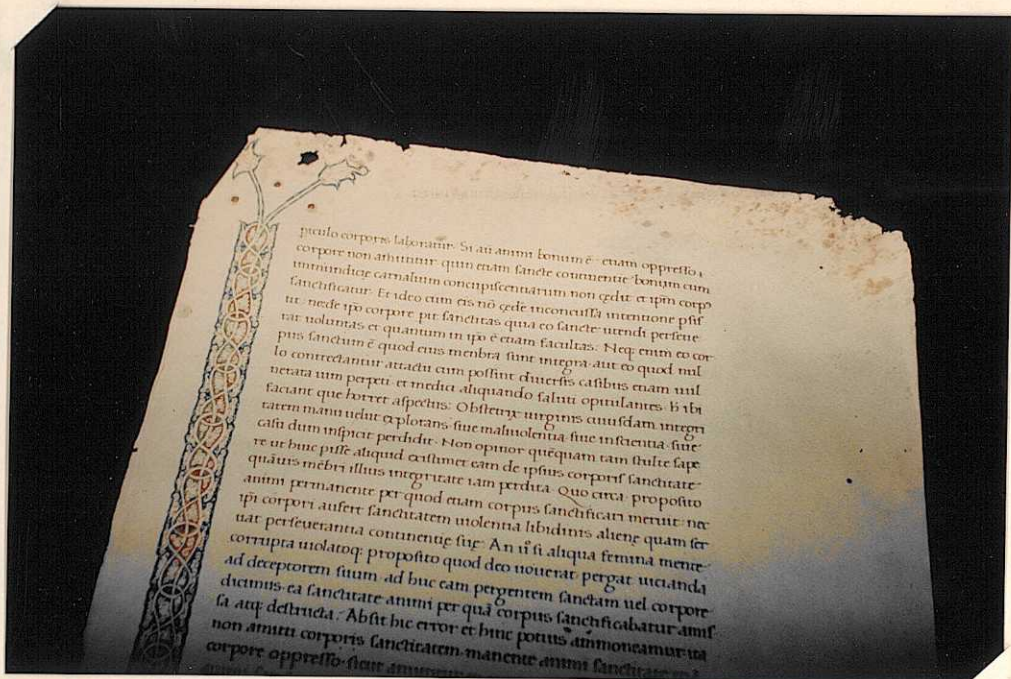 piculo corporis laboratur. Si aū animi bonum ē. etiam oppresso
corpore non amittitur. quin etiam sancte continentie bonum cum
inmundicię carnalium concupiscentiarum non cędit et ipm̄ corp⁹
sanctificatur. Et ideo cum eis nō cędē inconcussa intentione
tit. nec de ipo corpore pit sanctitas quia eo sancte utendi perseue
rat uoluntas et quantum in ipo ē etiam facultas. Neq; enim eo cor
pus sanctum ē quod eius menbra sunt integra. aut eo quod nul
lo contrectantur attactu cum possint diuersis casibus etiam uul
nerata uim perpeti. et medici aliquando saluti opitulantes. h̄ ibi
faciant que horret aspectus. Obstetrix uirginis cuiusdam integri
tatem manu uelut explorans. siue maliuolentia. siue inscientia. siue
casu dum inspicit perdidit. Non opinor quēquam tam stulte sape
re ut huic pisse aliquid existimet eam de ipsius corporis sanctitate
quāuis mēbri illius integritate iam perdita. Quo circa proposito
animi permanente per quod etiam corpus sanctificari meruit. nec
ipi corpori aufert sanctitatem uiolentia libidinis aliene quam ser
uat perseuerantia continentię suę. An ū si aliqua femina mente
corrupta uiolatoq; proposito quod deo uouerat pergat uicianda
ad deceptorem suum. ad huc eam pergentem sanctam uel corpore
dicimus. ea sanctitate animi per quā corpus sanctificabatur amis
sa atq; destructa. Absit hic error et hinc potius ammoneamur ita
non amitti corporis sanctitatem. manente animi sanctitate
corpore oppresso. sicut